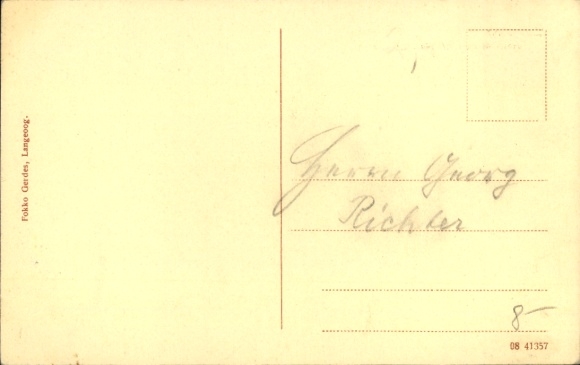 Fokko Gerdes, Langeoog.
Herrn Georg
Richter
8-
08 41357